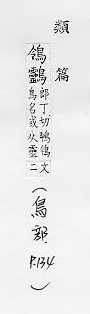 類篇
鴒䴇郎丁切鶺鴒文
鳥名或从靈二
(鳥部 P.134)